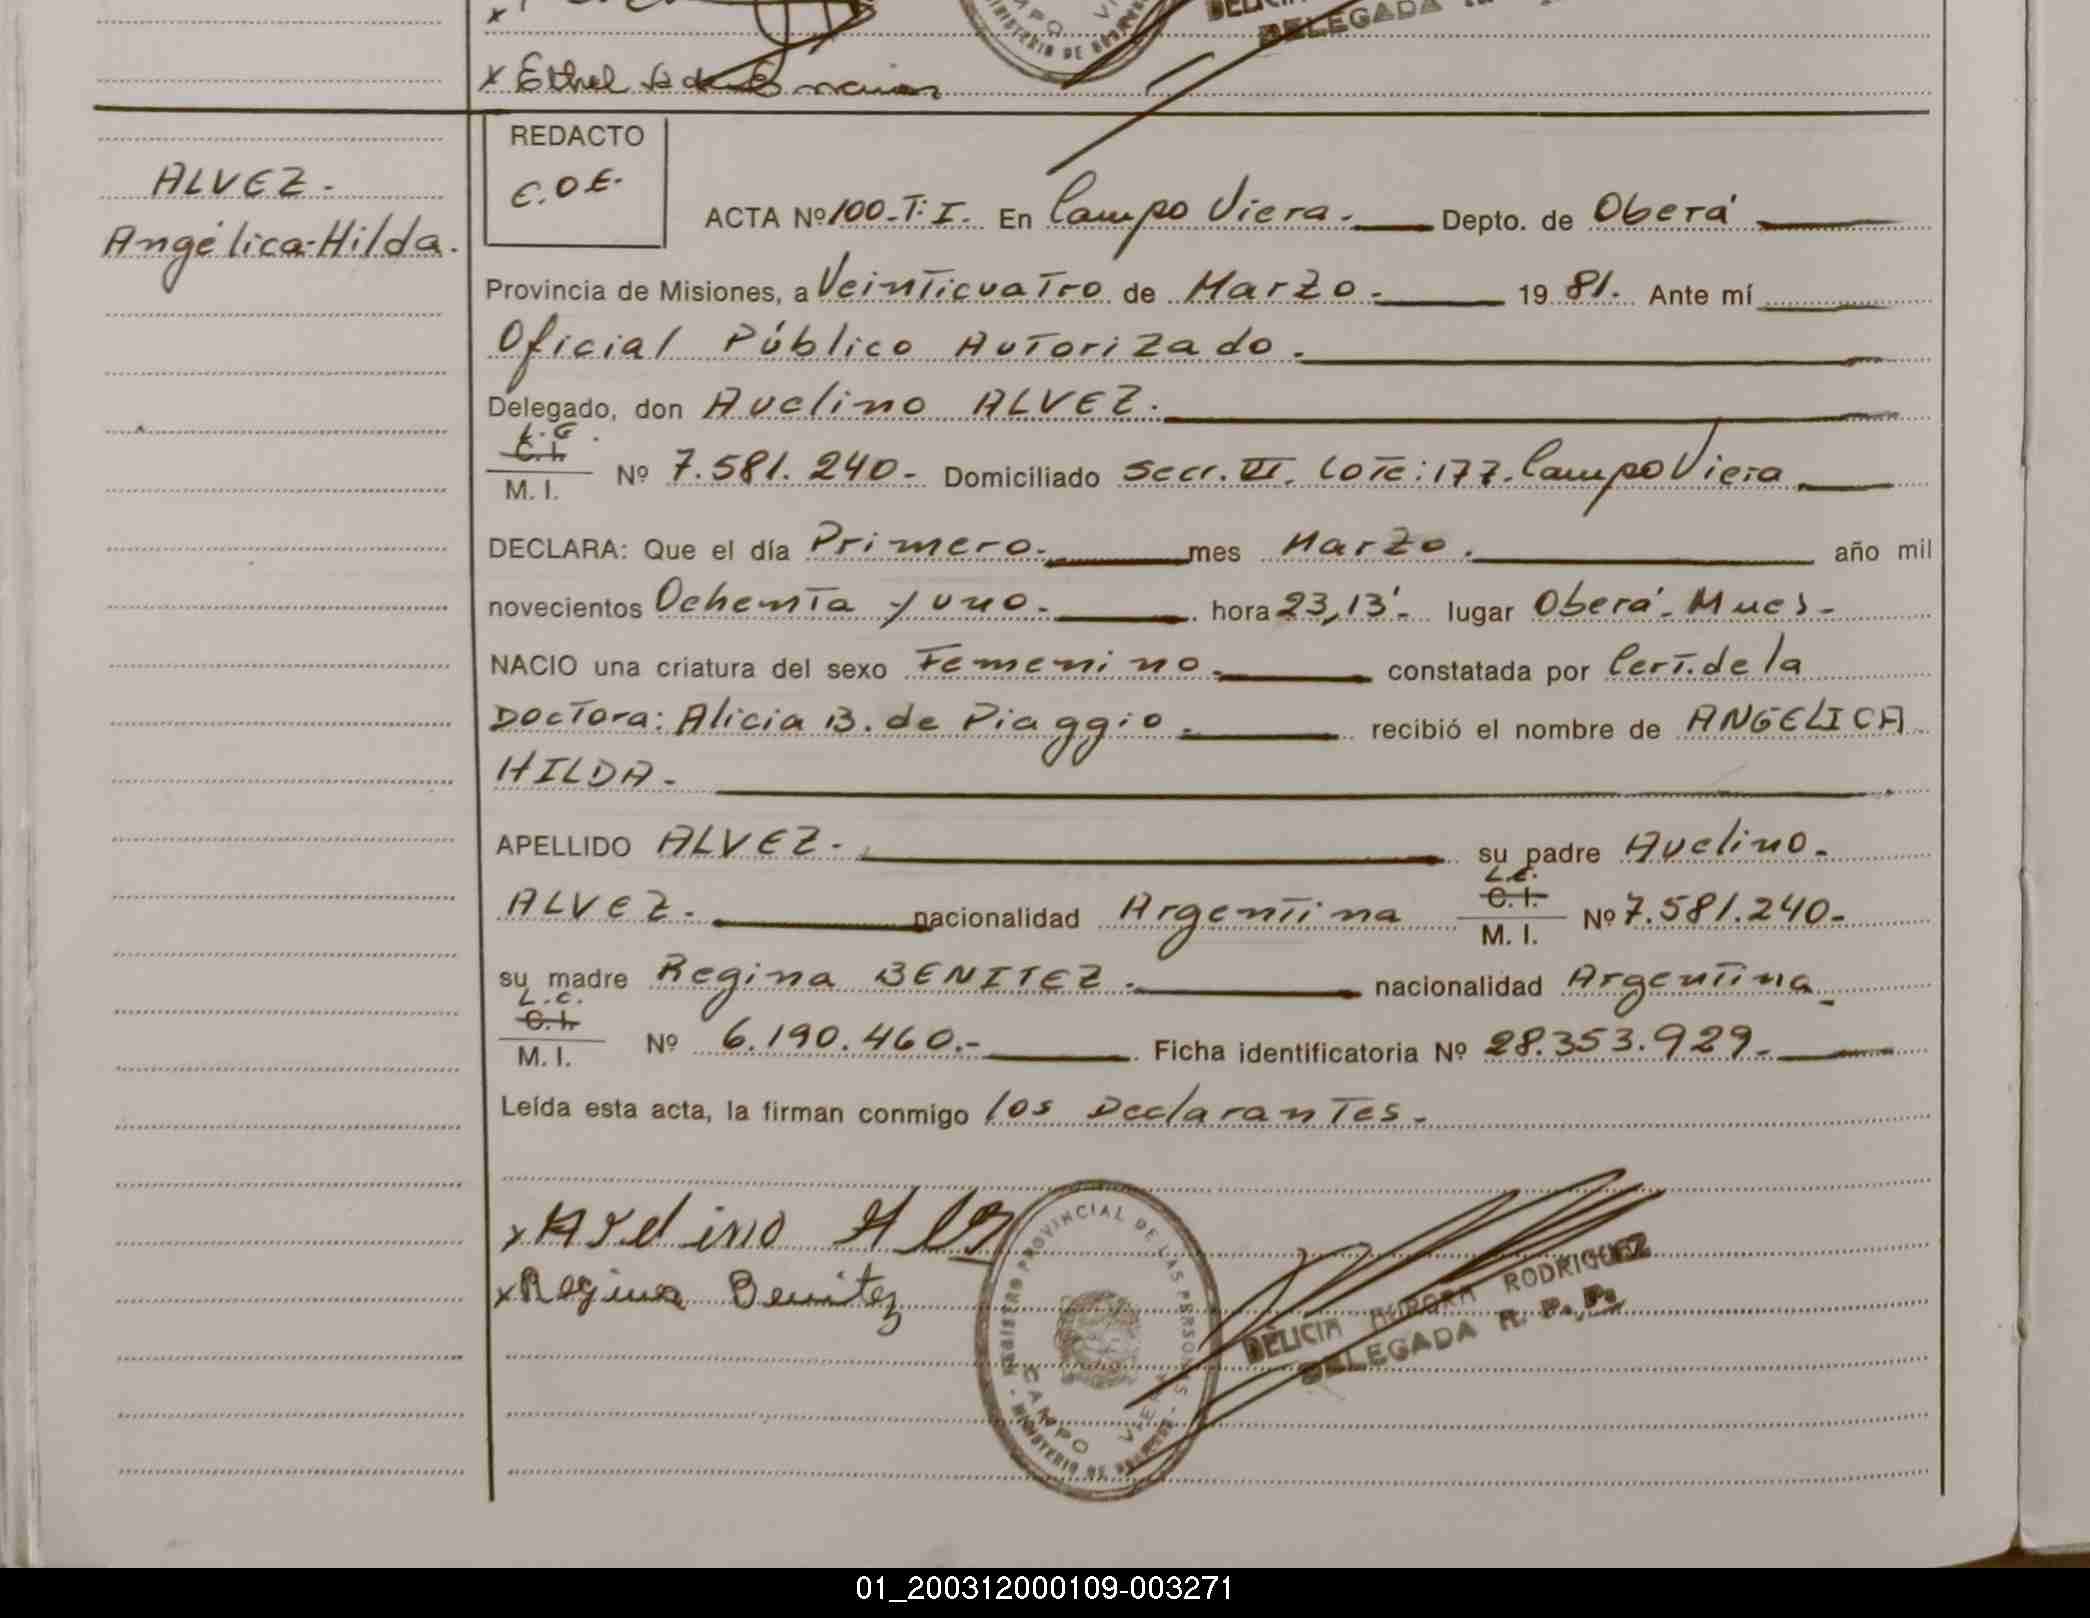 x Ethel
MINISTERIO DE
DELEGADA
REDACTO
C.D.E.
ALVEZ.
Angélica-Hilda.
ACTA Nº 100-T: I. En Campo Viera. Depto. de Oberá
Provincia de Misiones, a Veinticuatro de Marzo. 19 81. Ante mí
Oficial Público Autorizado.
Delegado, don Avelino ALVEZ.
C.I.
M. I. Nº 7.581.240- Domiciliado Secc. VI. Lote: 177. Campo Viera
DECLARA: Que el día Primero. mes Marzo. año mil
novecientos Ochenta y uno. hora 23,13'- lugar Oberá- Mnes-
NACIO una criatura del sexo Femenino. constatada por Cert. de la
Doctora: Alicia B. de Piaggio. recibió el nombre de ANGELICA
HILDA.
APELLIDO ALVEZ. su padre Avelino.
L.E.
ALVEZ. nacionalidad Argentina C.I. M. I. Nº 7.581.240-
su madre Regina BENITEZ. nacionalidad Argentina
L.C.
C.I.
M. I. Nº 6.190.460.- Ficha identificatoria Nº 28.353.929.
Leída esta acta, la firman conmigo los Declarantes.
x Avelino
x Regina Benitez
REGISTRO PROVINCIAL DE LAS PERSONAS
CAMPO VIERA
MINISTERIO DE
DELICIA AURORA RODRIGUEZ
DELEGADA R. P. P.
01_200312000109-003271